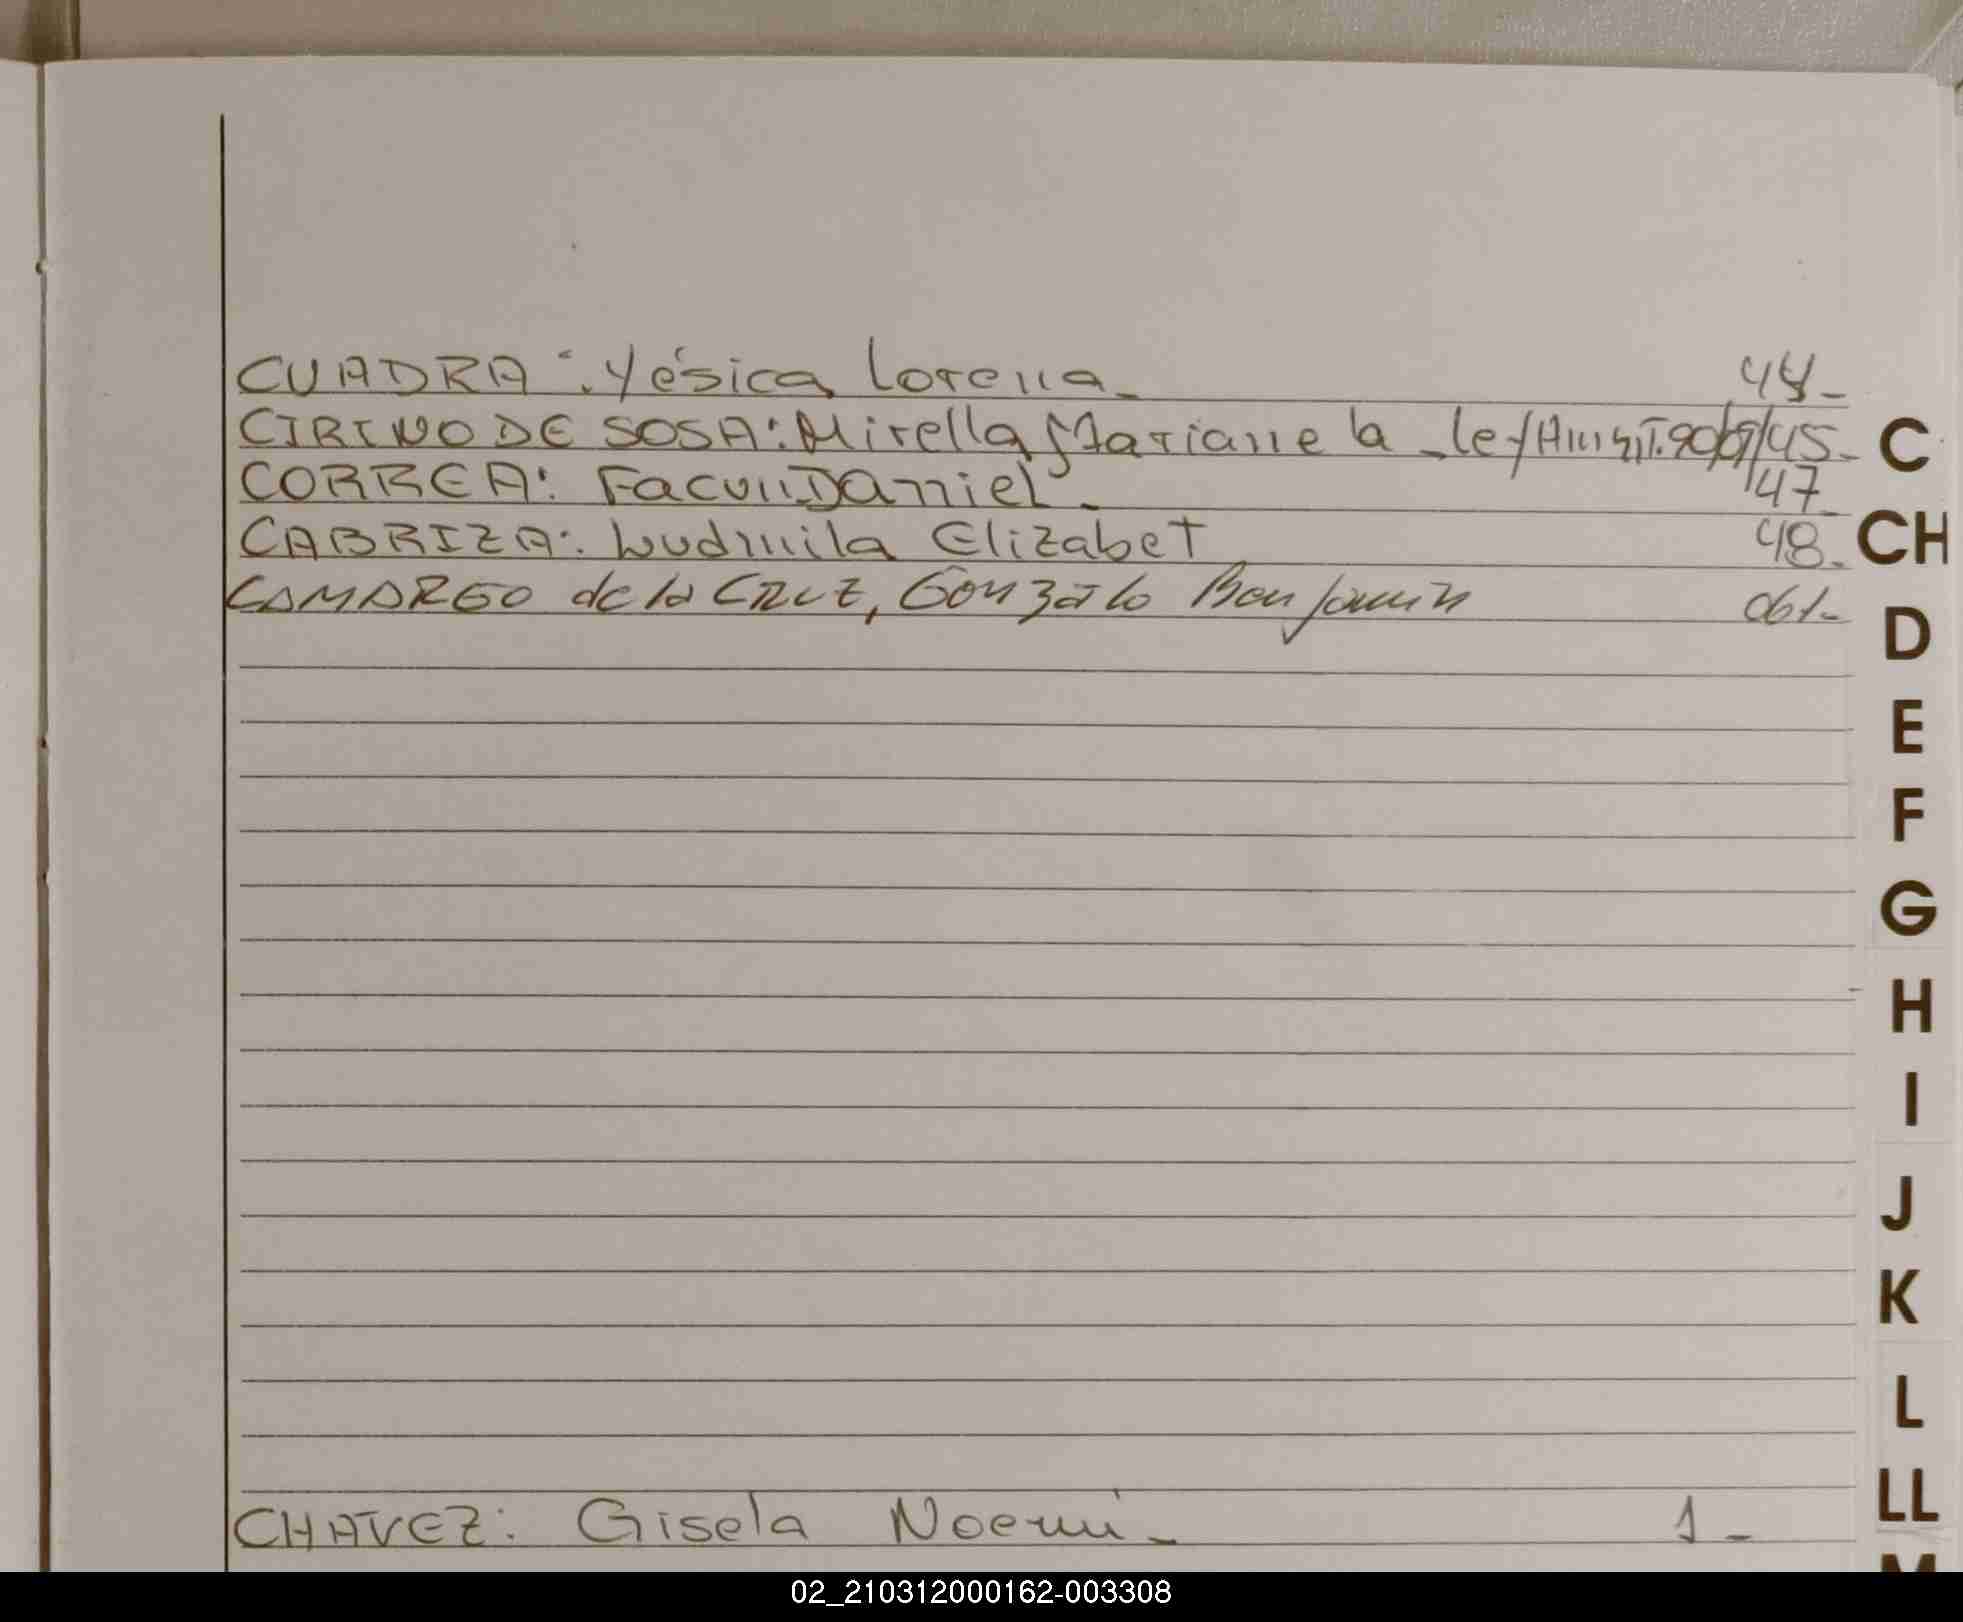 CUADRA: Yésica Lorena_ 44_
CIRINO DE SOSA: Mirella Marianela _ley 45_
CORREA: Facun Daniel_ 47_
CABRIZA: Ludmila Elizabet 48_
CAMARGO de la CRUZ, Gonzalo Benjamin 061_
CHAVEZ: Gisela Noemí_ 1_
C
CH
D
E
F
G
H
I
J
K
L
LL
M
02_210312000162-003308